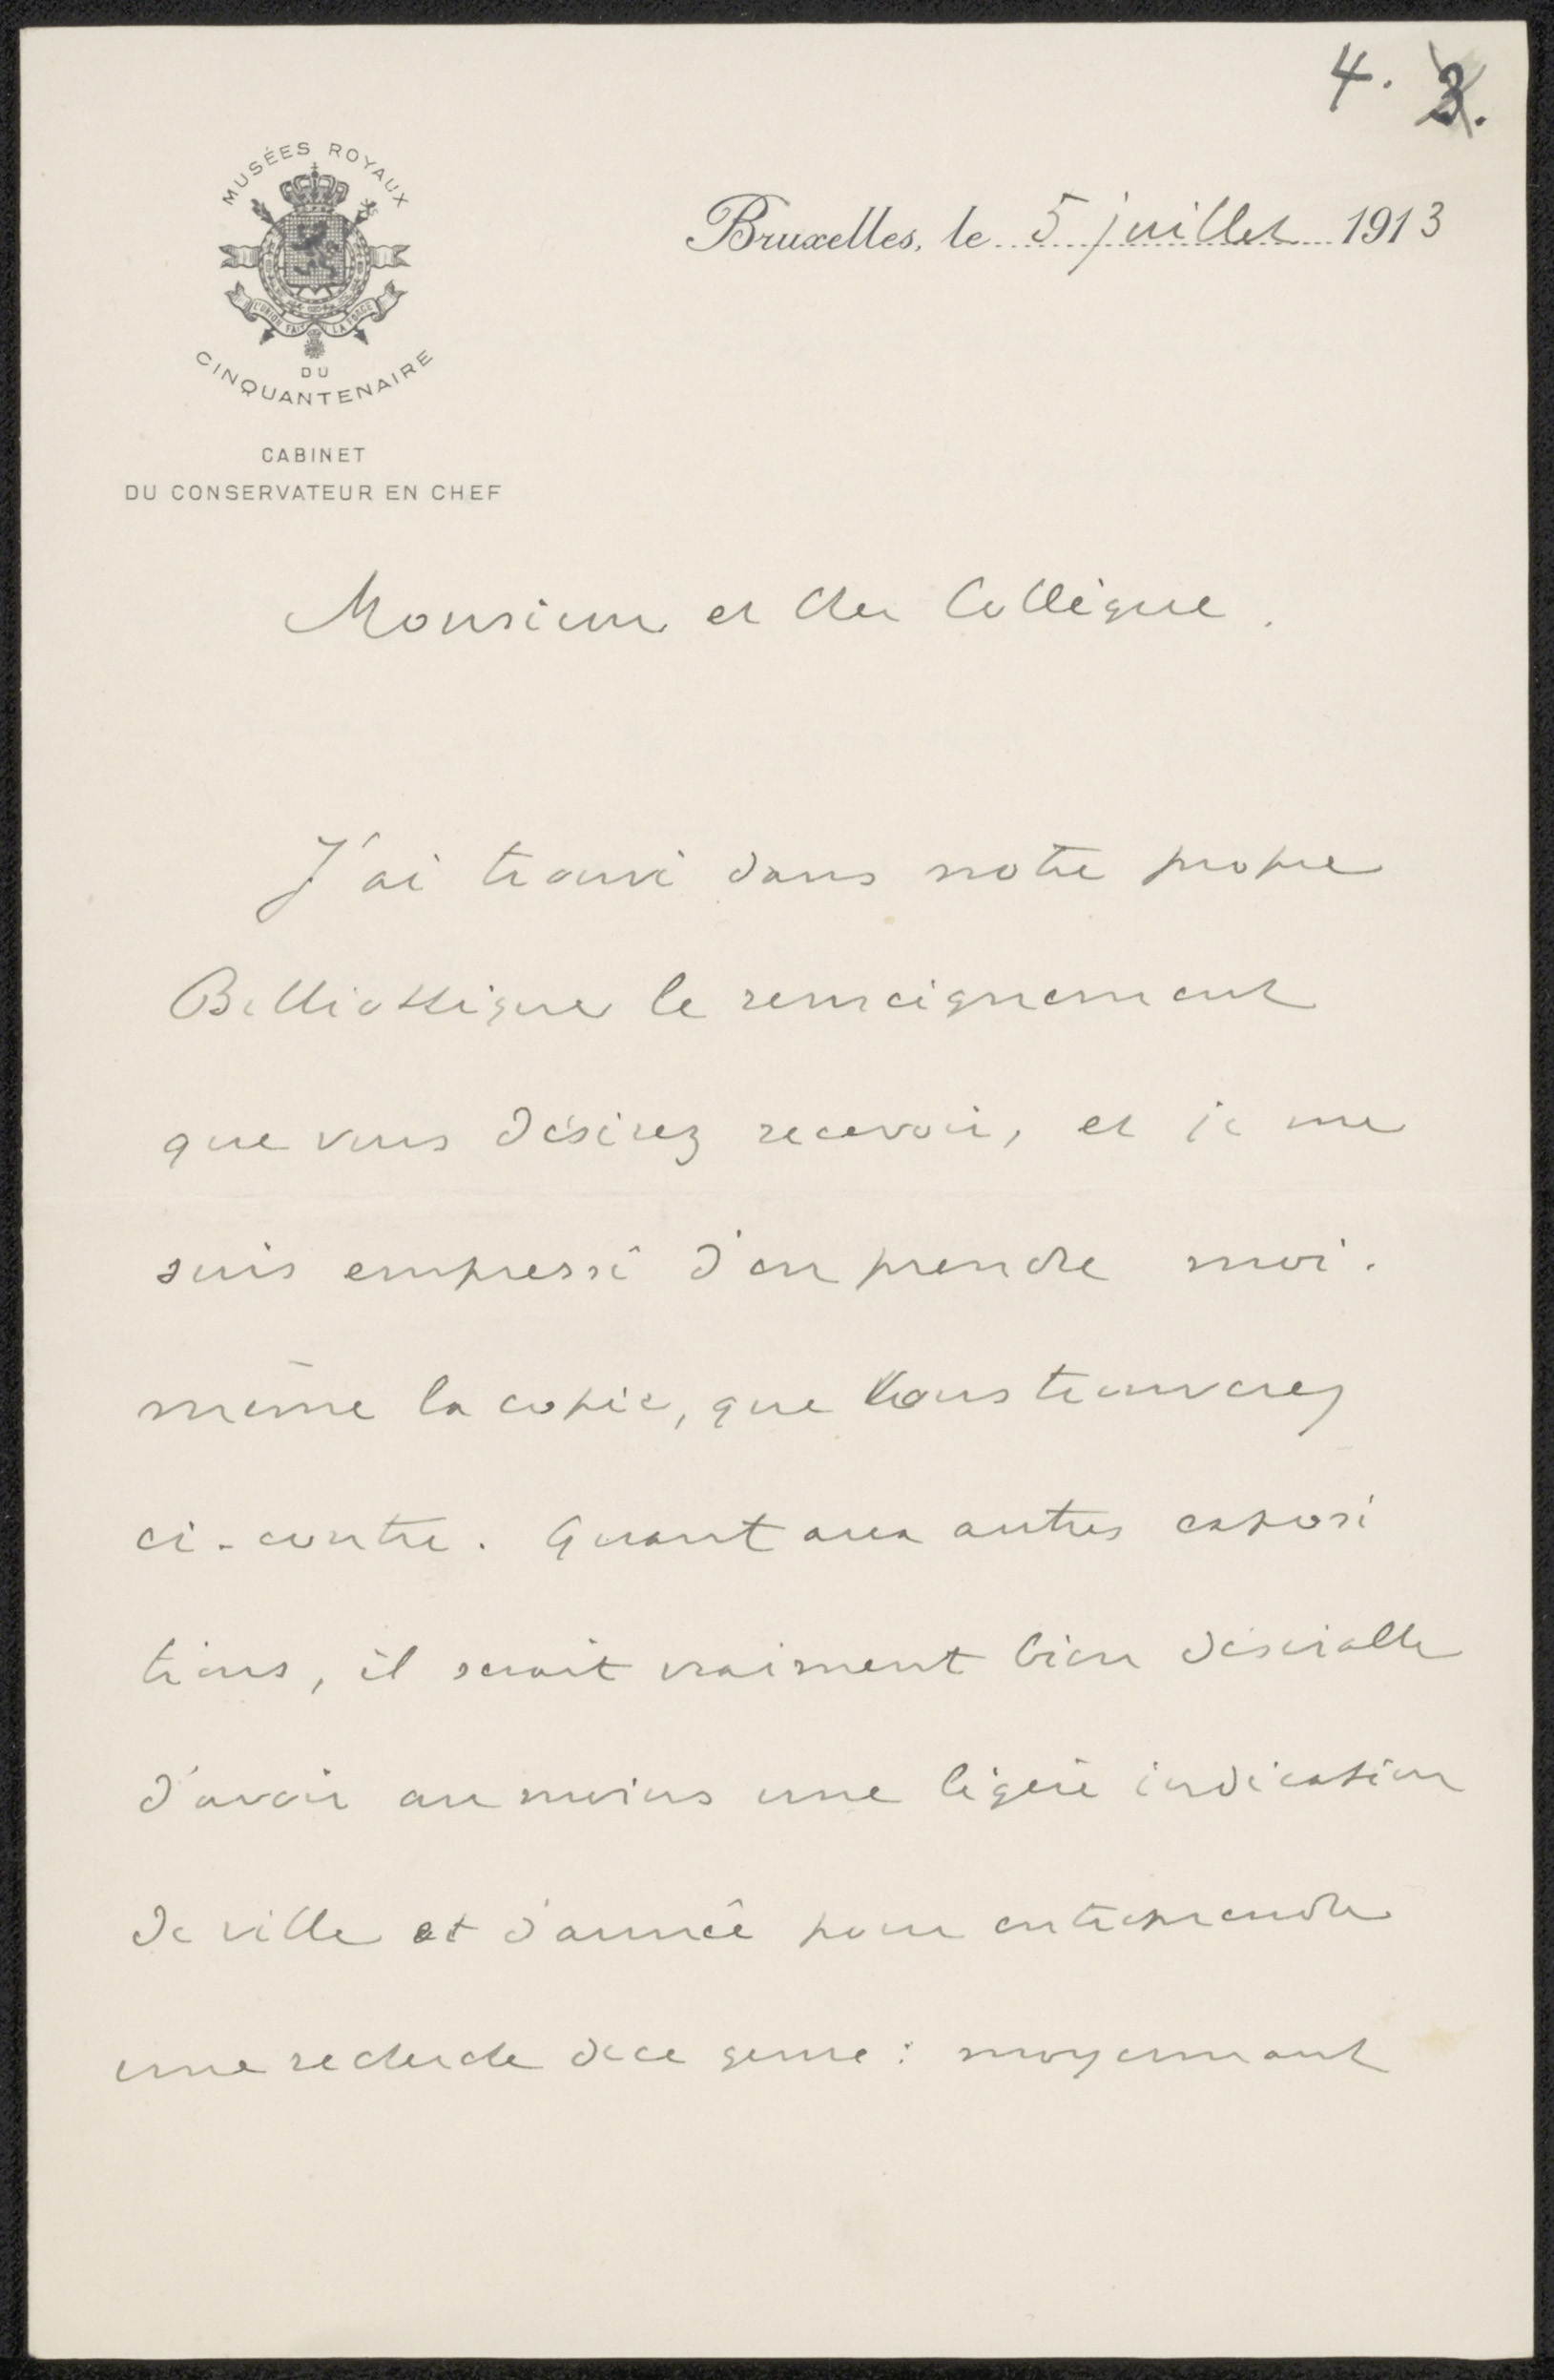 4. 3.
MUSÉES ROYAUX
L'UNION FAIT LA FORCE
DU
CINQUANTENAIRE
CABINET
DU CONSERVATEUR EN CHEF
Bruxelles, le 5 juillet 1913
Monsieur et cher Collègue.
J'ai trouvé dans notre propre
Bibliothèque le renseignement
que vous désirez recevoir, et je me
suis empressé d'en prendre moi-
même la copie, que vous trouverez
ci-contre. Quant aux autres exposi
tions, il serait vraiment bien désirable
d'avoir au moins une légère indication
de ville et d'année pour entreprendre
une recherche de ce genre : moyennant